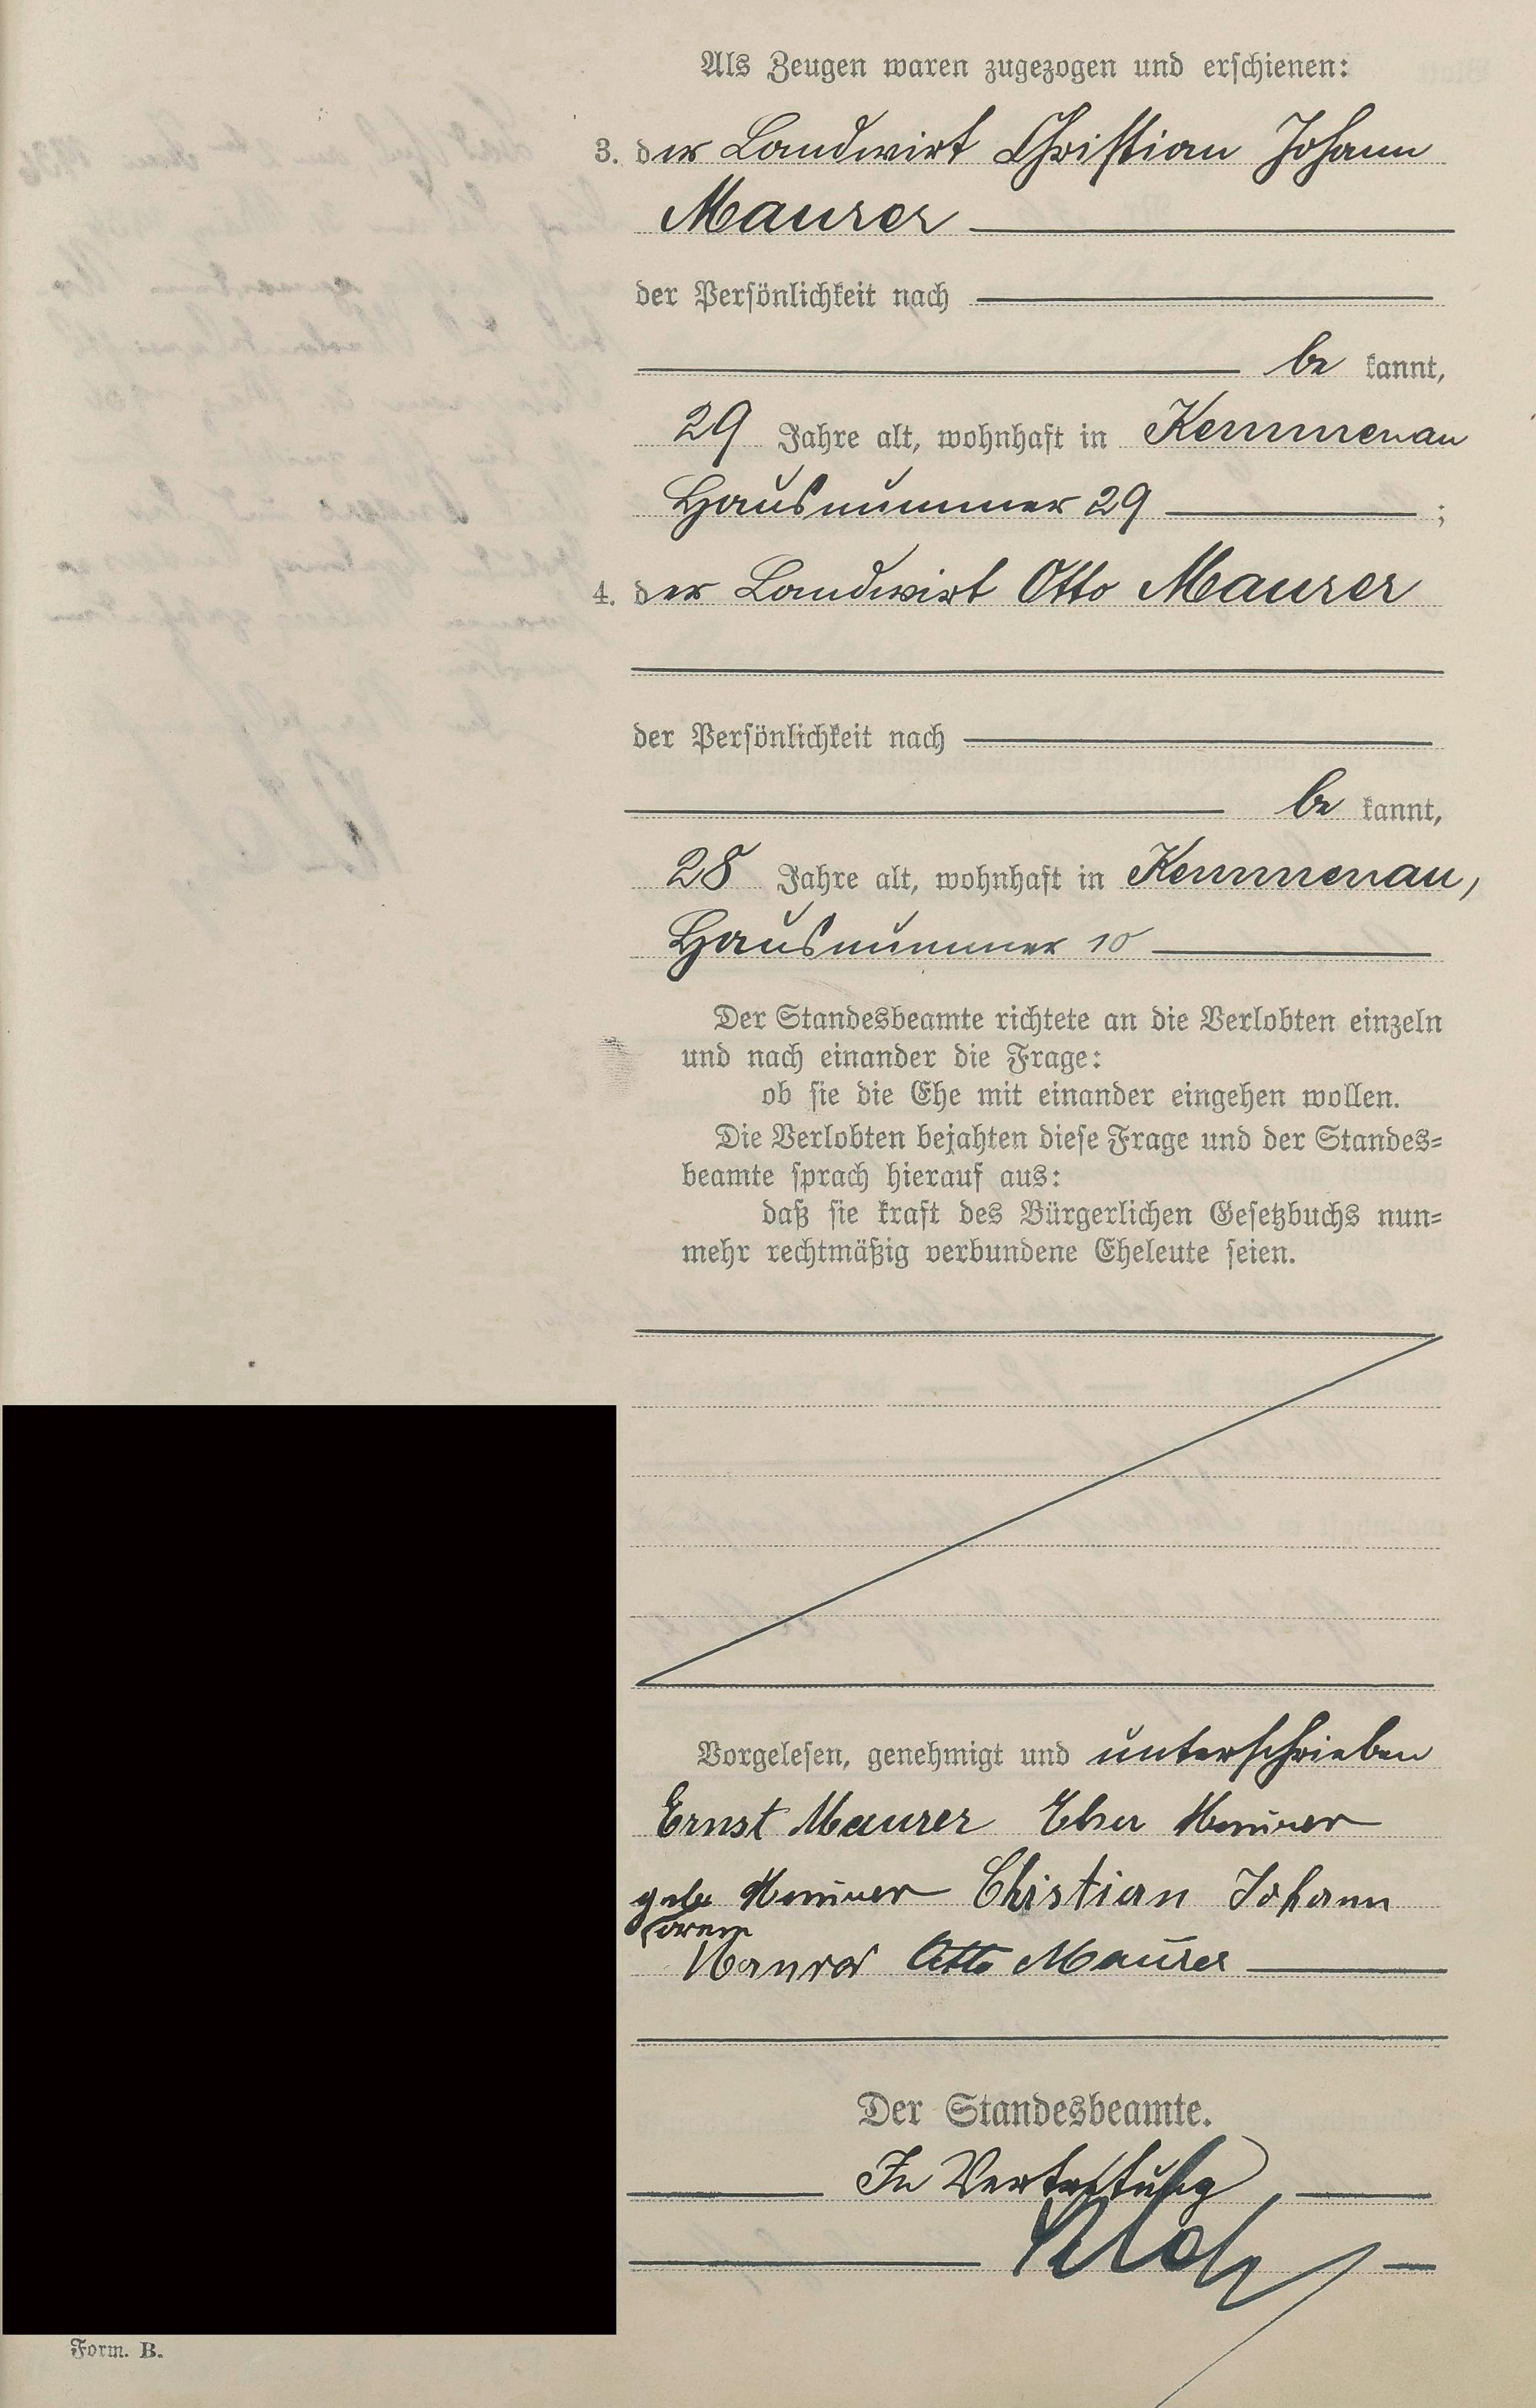 Als Zeugen waren zugezogen und erschienen:
3. der Landwirt Christian Johann
Maurer
der Persönlichkeit nach
be kannt,
29 Jahre alt, wohnhaft in Kemmenau
Hausnummer 29 ;
4. der Landwirt Otto Maurer
der Persönlichkeit nach
be kannt,
28 Jahre alt, wohnhaft in Kemmenau,
Hausnummer 10
Der Standesbeamte richtete an die Verlobten einzeln
und nach einander die Frage:
ob sie die Ehe mit einander eingehen wollen.
Die Verlobten bejahten diese Frage und der Standes=
beamte sprach hierauf aus:
daß sie kraft des Bürgerlichen Gesetzbuchs nun=
mehr rechtmäßig verbundene Eheleute seien.
Vorgelesen, genehmigt und unterschrieben
Ernst Maurer Maurer
Maurer Christian Johann
Otto Maurer
Der Standesbeamte.
In Vertretung
Form. B.